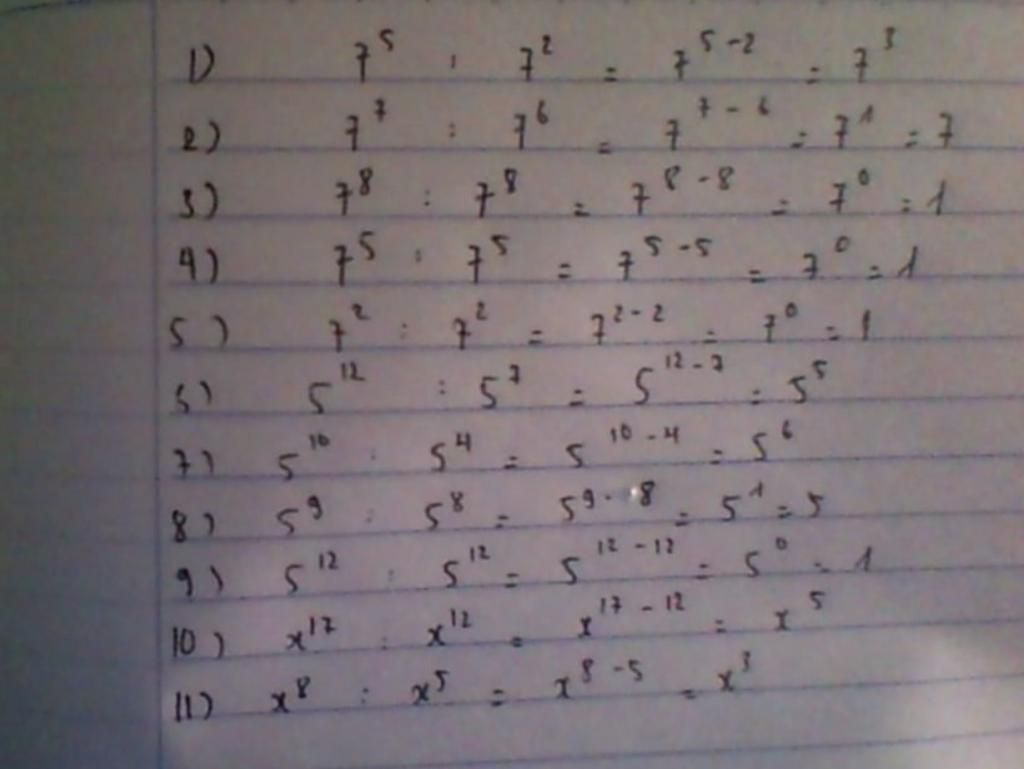 1) 7⁵ : 7² = 7⁵⁻² = 7³
2) 7⁷ : 7⁶ = 7⁷⁻⁶ = 7¹ = 7
3) 7⁸ : 7⁸ = 7⁸⁻⁸ = 7⁰ = 1
4) 7⁵ : 7⁵ = 7⁵⁻⁵ = 7⁰ = 1
5) 7² : 7² = 7²⁻² = 7⁰ = 1
6) 5¹² : 5⁷ = 5¹²⁻⁷ = 5⁵
7) 5¹⁰ : 5⁴ = 5¹⁰⁻⁴ = 5⁶
8) 5⁹ : 5⁸ = 5⁹⁻⁸ = 5¹ = 5
9) 5¹² : 5¹² = 5¹²⁻¹² = 5⁰ = 1
10) x¹⁷ : x¹² = x¹⁷⁻¹² = x⁵
11) x⁸ : x⁵ = x⁸⁻⁵ = x³